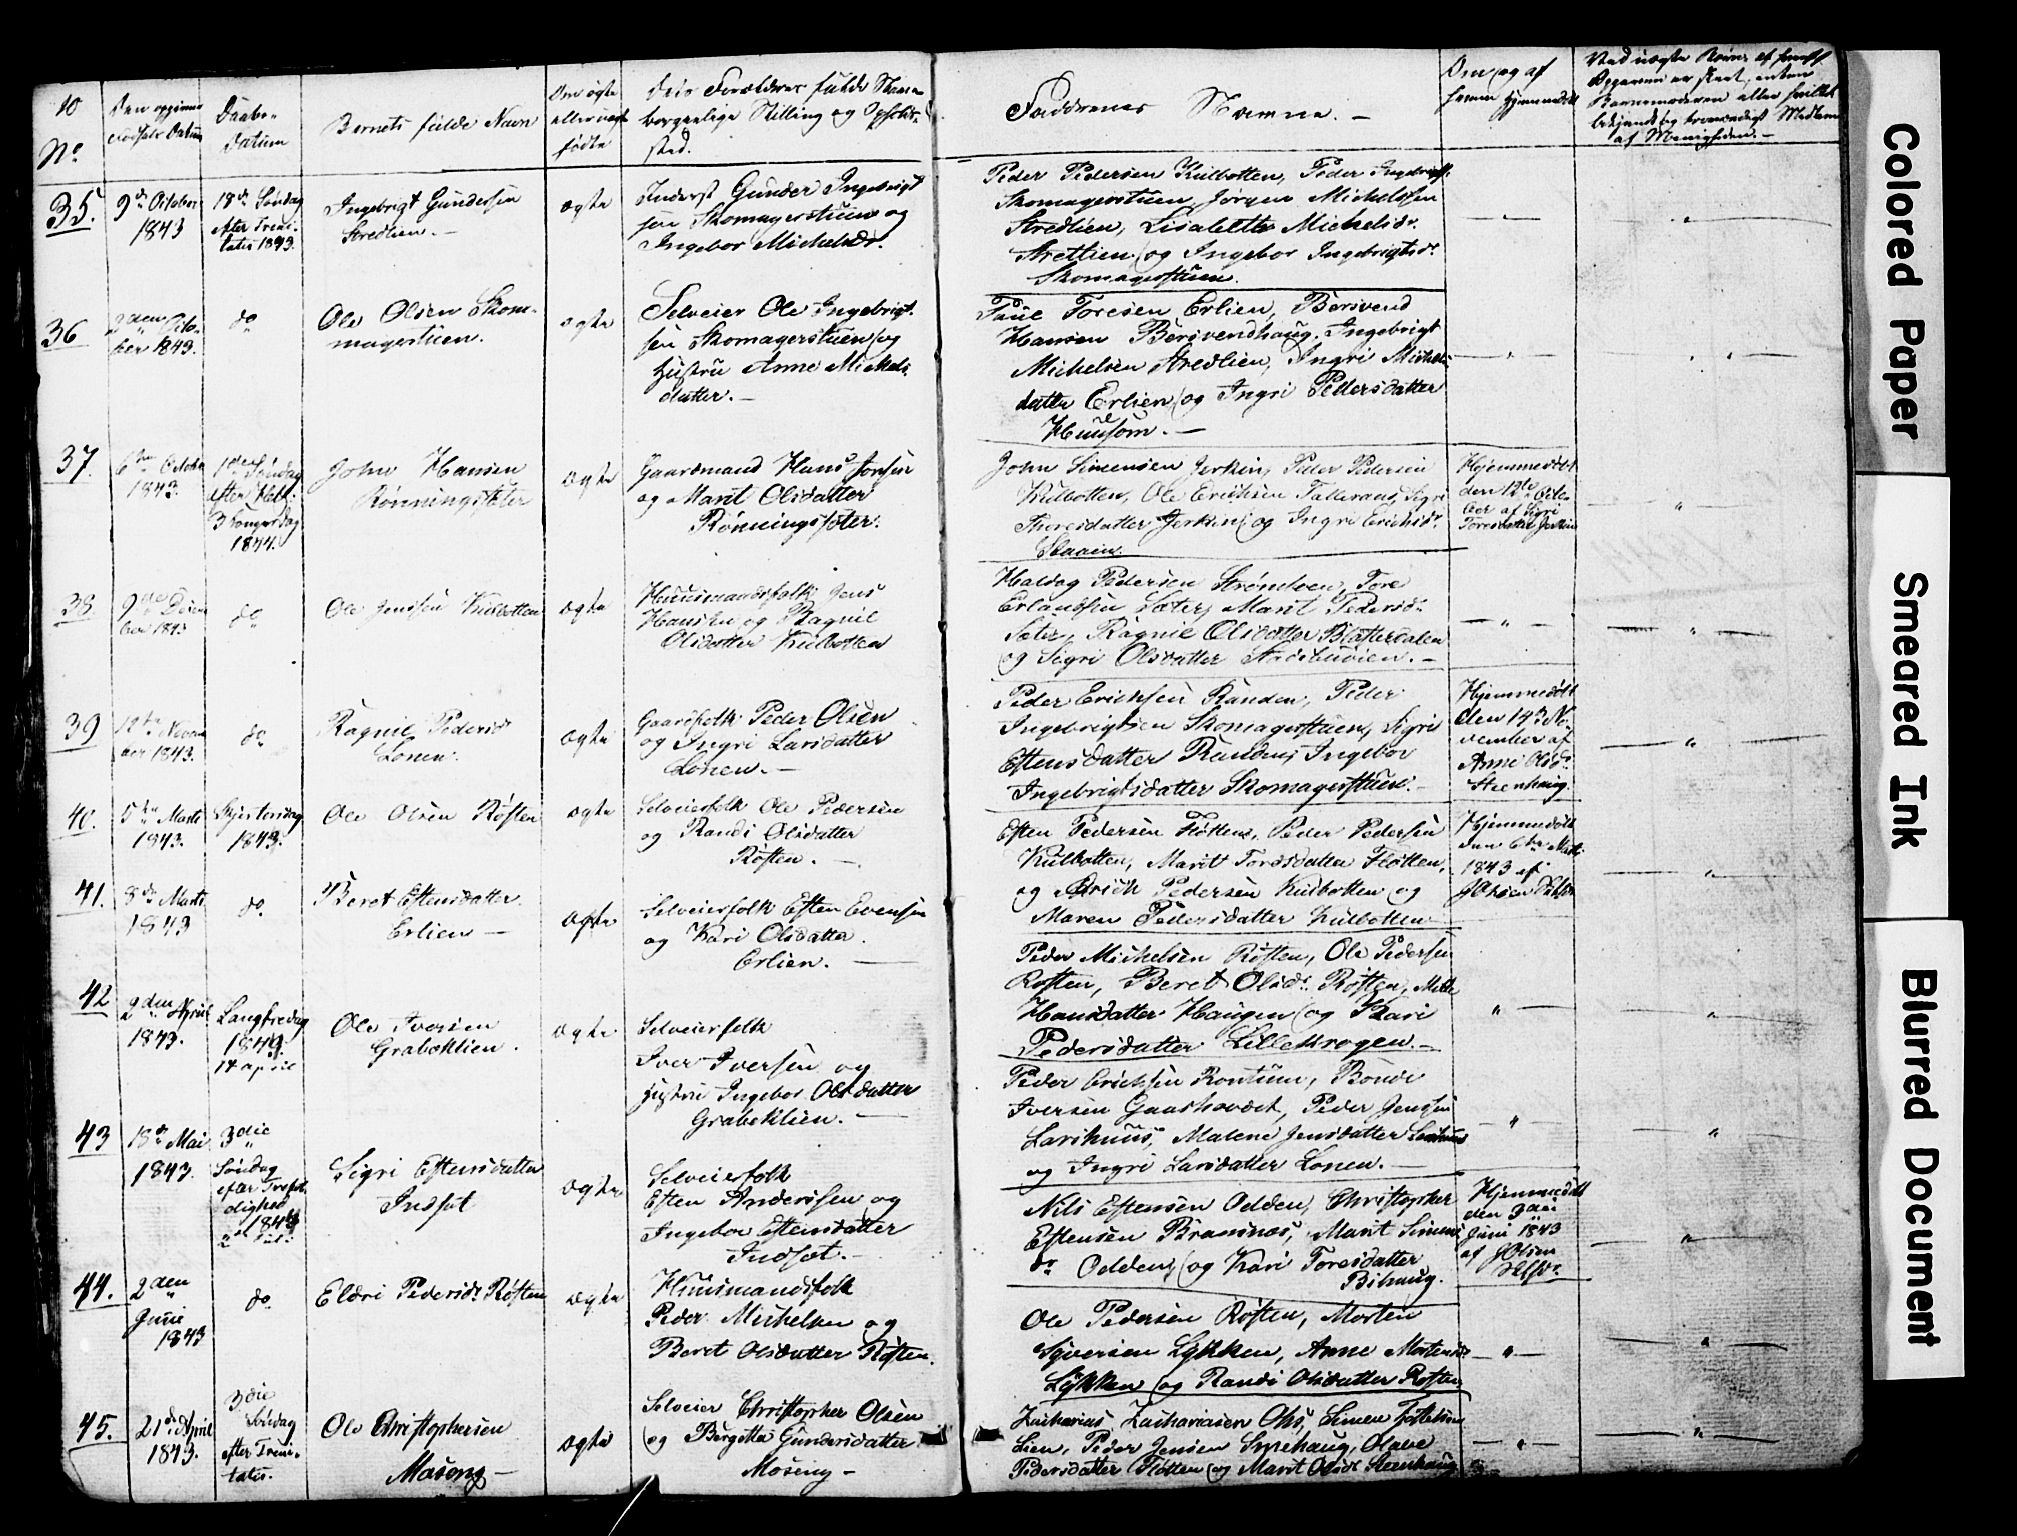 10
No
Den opgivne
Fødsels Datum
Daabs-
Datum
Bernets fulde Navn
Om ægte
eller uægte
fødte
Dets Forældres fulde Navne
borgerlige Stilling og Opholds-
sted.
Faddrenes Navne. -
Om og af
hvem hjemmedøbt
35.
9de October
1843
18de Søndag
After Trini-
tatis 1843.
Ingebrigt Gundersen
Stredlien. -
ægte
Inderst Gunder Ingebrigt
sen Skomagerstuen og
Ingebor Michelsdr.
Peder Pedersen Kulbotten, Peder Ingebrigts.
Skomagerstuen, Jørgen Michelssen
Stredlien, Lisabeth Michelsdr.
Stretlien og Ingebor Ingebrigtsdr
Skomagerstuen.
36
Octo-
ber 1843.
do
Ole Olsen Skom-
magerstuen.
ægte
Selveier Ole Ingebrigt-
sen Skomagerstuen og
Hustru Anne Mickels-
datter. -
Paul Toresen Erlien, Berivend
Hansen Berivendhaug, Ingebrigt
Michelsen Stredlien, Ingri Michels-
datter Erlien og Ingri Pedersdatter
Huusom. -
37.
6te Octobr
1843.
1ste Søndag
efter Hell:
3 Kongersdag
1844.
John Hansen
Rønningsæter
ægte
Gaardmand Hans Jonsen
og Marit Olsdatter
Rønningsæter.
John Simensen Jerkin, Peder Pedersen
Kulbotten, Ole Ericksen Talleraas, Sigri
Thoresdatter Jerkin og Ingri Erichsdr
Slaaen.
Hjemmedøbt
den 12te Octo-
ber af Sigri
Toresdatter Jerkin
38.
9de Decem
ber 1843
do
Ole Jenssen Kulbotten
ægte
Huusmandsfolk Jens
Hansen og Ragnil
Olsdatter Kulbotten
Haldog Pedersen Strømloen, Tore
Erlandsen Sæter, Marit Pedersdr
Sæter, Ragnil Olsdatter Blæsterdalen
og Sigri Olsdatter Stadsbuøien. -
39
12te Novem
ber 1843.
do
Ragnil Pedersd
Lonen.
ægte
Gaardfolk Peder Olsen
og Ingri Larsdatter
Lonen. -
Peder Ericksen Randen, Peder
Ingebrigtsen Skomagerstuen, Sigri
Estensdatter Randen, Ingebor
Ingebrigtsdatter Skomagerstuen. -
Hjemmedøbt
den 14de No-
vember af
Anne Olsdr
Steenhaug.
40.
5te Marti
1843.
Skjertorsdag
1843.
Ole Olsen Røsten
ægte
Selveierfolk Ole Pedersen
og Randi Olsdatter
Røsten. -
Esten Pedersen Fløtten, Peder Pedersen
Kulbotten, Marit Toresdatter Fløtten,
og Erick Pedersen Kulbotten og
Maren Pedersdatter Kulbotten
Hjemmedøbt
den 6te Marti
1843 af
41.
8de Marti
1843
do
Beret Estensdatter
Erlien -
ægte
Selveierfolk Esten Evensen
og Kari Olsdatter.
Erlien. -
Peder Michelsen Røsten, Ole Pedersen
Røsten, Beret Olsdr. Røsten, Mette
Hansdatter Haugen og Kari
Pedersdatter Lillekrogen. -
42
2den April
1843.
Langfredag
1843.
14 april
Ole Iversen
Grabæklien.
ægte
Selveierfolk
Iver Iversen og
Hustru Ingebor Olsdatter
Grabeklien. -
Peder Ericksen Rontuen, Bonde
Iversen Gaashovdet, Peder Jenssen
Larshuus, Malene Jensdatter Larshuus
og Ingri Larsdatter Lonen. -
43
18de Mai
1843.
3die
Søndag
efter Trefol
dighed
1843
2den Juli
Sigri Estensdatter
Indset
ægte
Selveierfolk
Esten Anderssen og
Ingebor Estensdatter
Indset. -
Nils Estensen Odden, Christopher
Estensen Bramnæs, Marit Simens
dr Odden, og Kari Toresdatter
Bihaug.
Hjemmedøbt
den 3die
Juni 1843
af J Olsen
44.
2den
Junie
1843
do
Eldri Pedersdr Røsten
ægte
Huusmandsfolk
Peder Michelsen og
Beret Olsdatter Røsten.
Ole Pedersen Røsten, Morten
Syversen Løkken, Anne Mortensdr
Løkken og Randi Olsdatter Røsten
45.
21de April
1843.
3die
Søndag
efter Trini-
tatis.
Ole Christophersen
Moseng -
ægte
Selveier Christopher Olsen
og Bergitte Gundersdatter
Moseng -
Zacharias Zachariasen Ohs, Simen Tostensen
Lien, Peder Jensen Smehaug, Olave
Pedersdatter Fløtten og Marit Olsdr Steenhaug
Colored Paper
Smeared Ink
Blurred Document